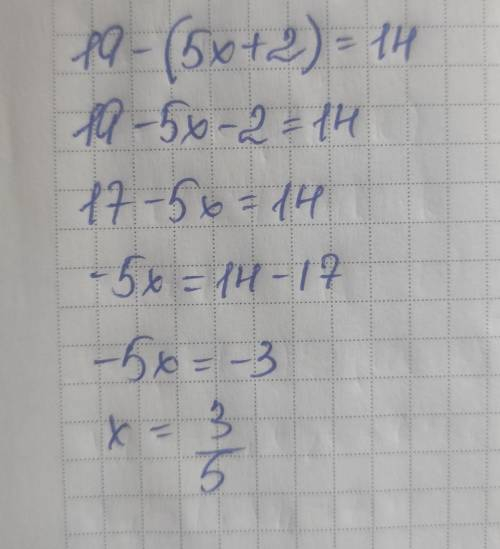 19 - (5x + 2) = 14
19 - 5x - 2 = 14
17 - 5x = 14
-5x = 14 - 17
-5x = -3
x = 3/5